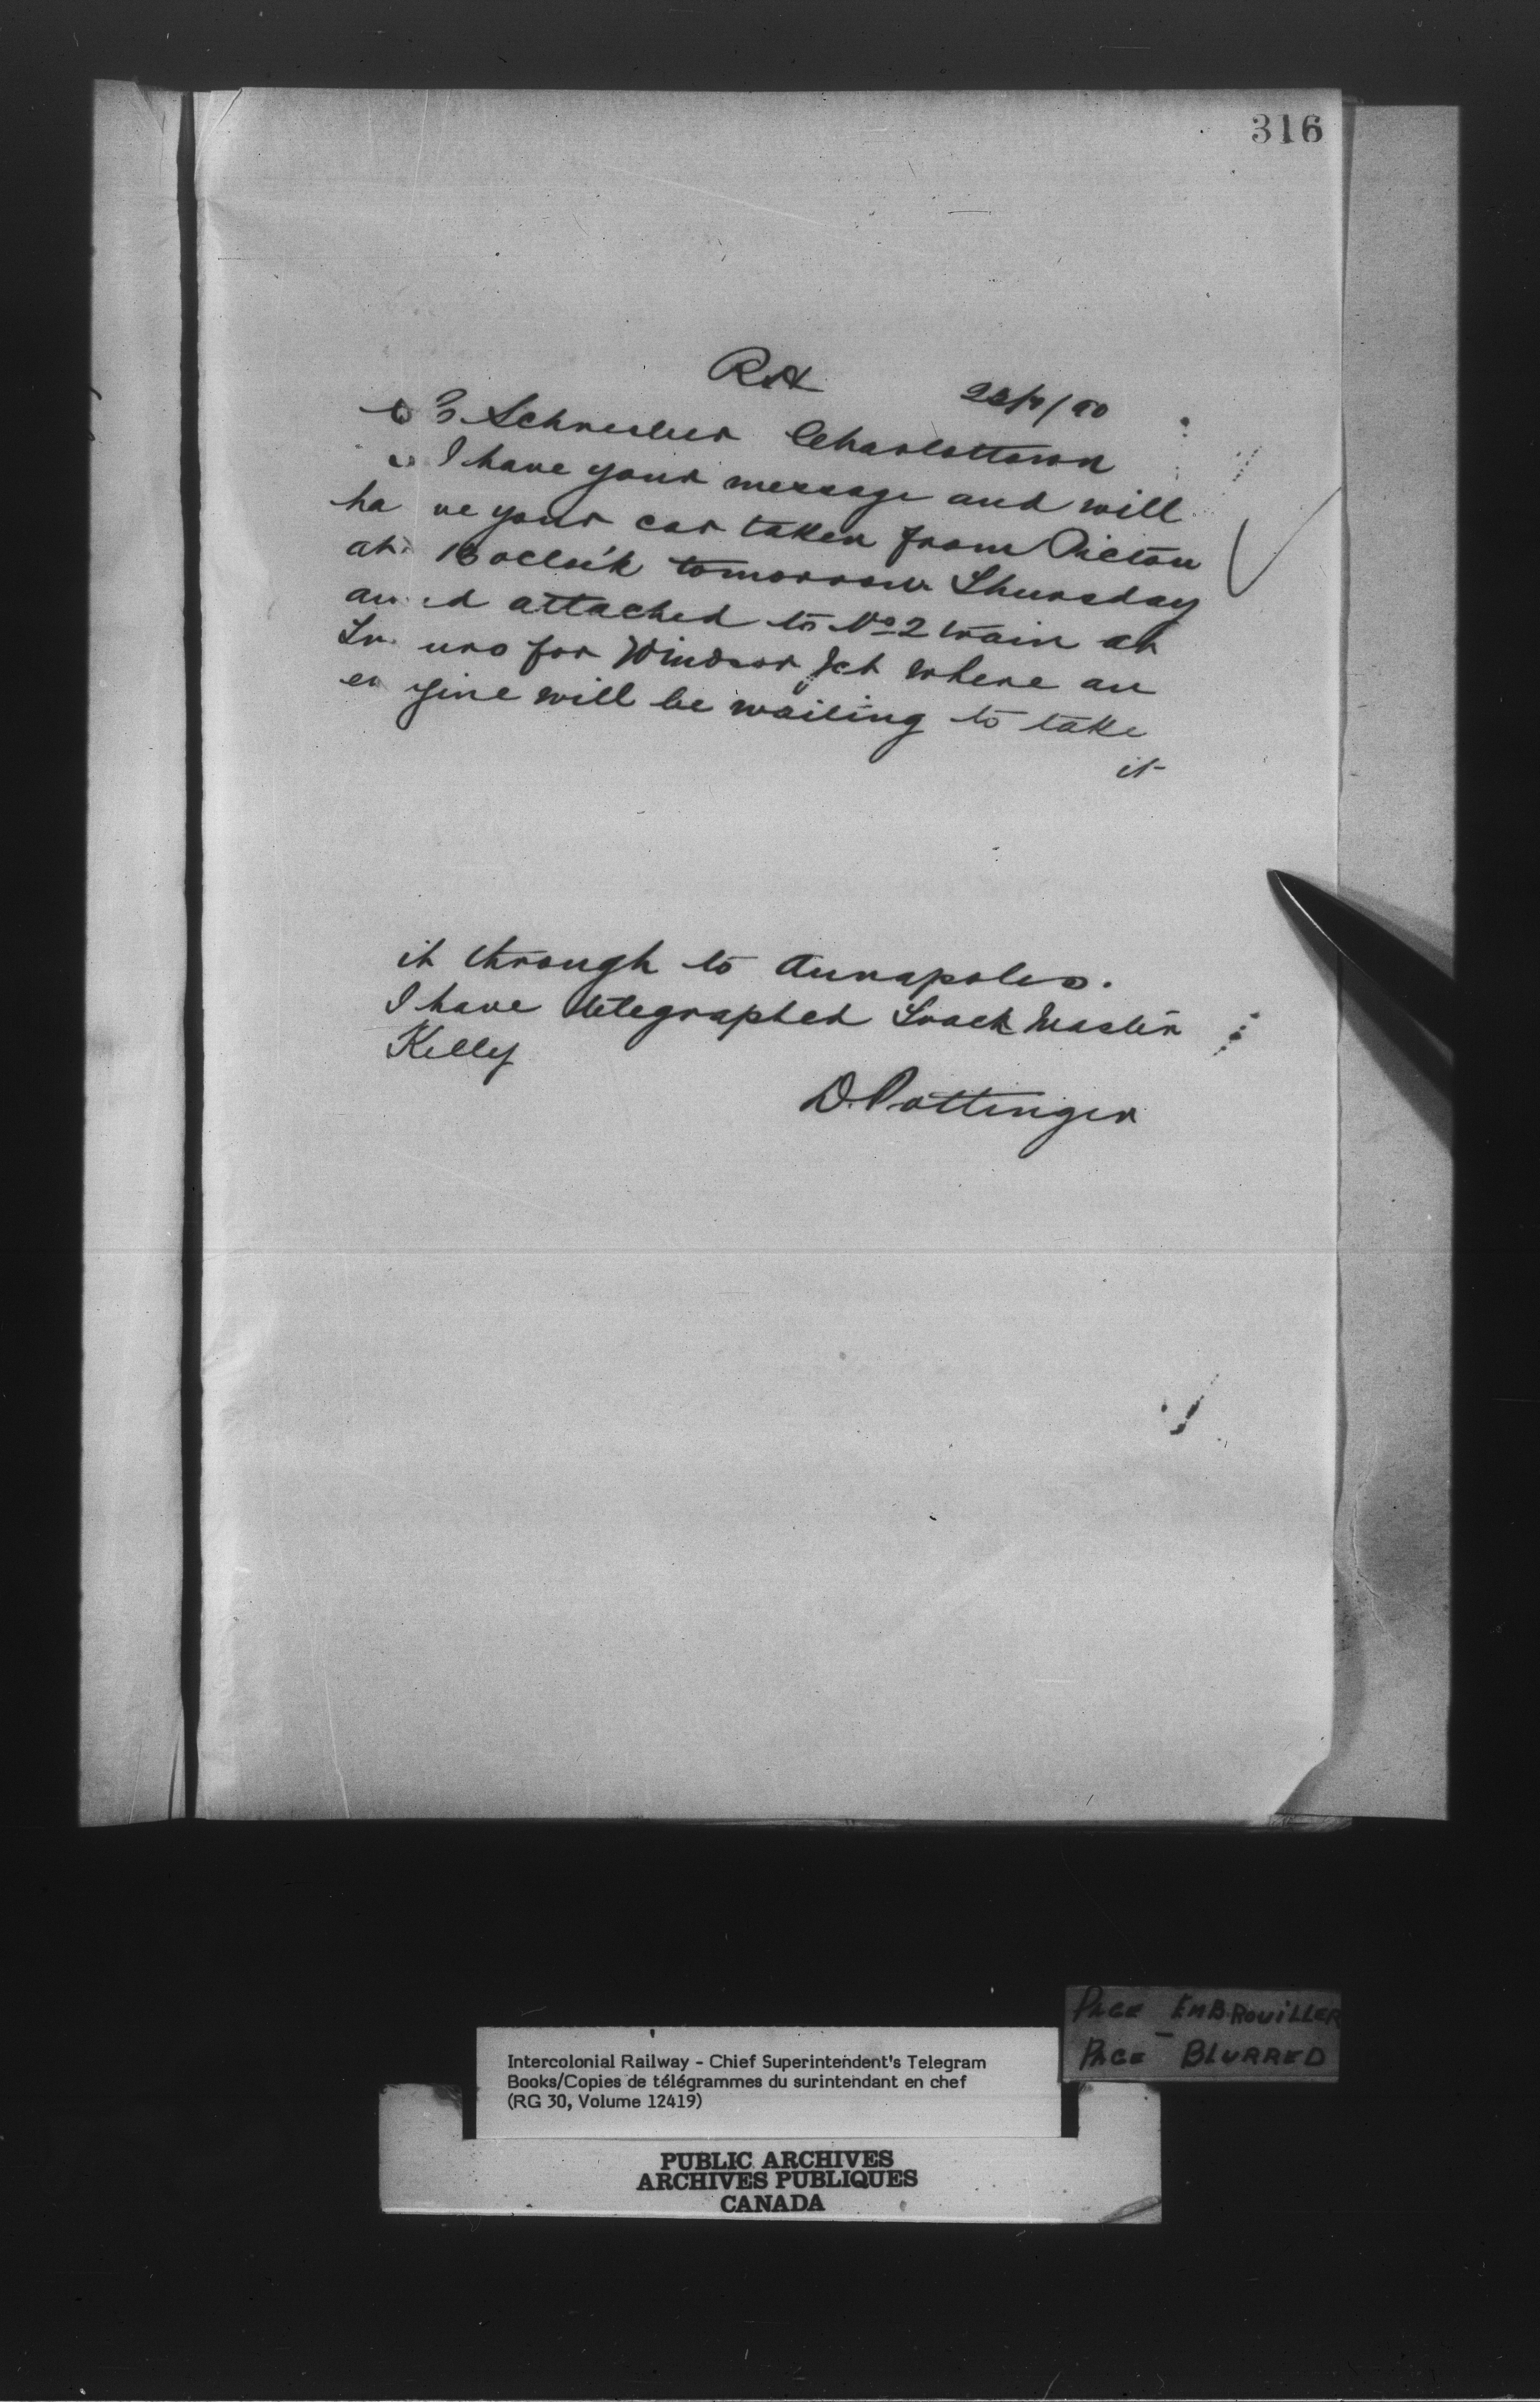 316
RH 22/9/80
to C Schreiber Charlottown
I have your message and will
have your car taken from Pictou
at 18 oclock tomorrow Thursday
and attached to No 2 train at
Truro for Windsor Jct where an
engine will be waiting to take
it
it through to Annapolis.
I have telegraphed Track Master
Kelly
D. Pottinger
PAGE EMBROUILLER
PAGE BLURRED
Intercolonial Railway - Chief Superintendent's Telegram
Books/Copies de télégrammes du surintendant en chef
(RG 30, Volume 12419)
PUBLIC ARCHIVES
ARCHIVES PUBLIQUES
CANADA